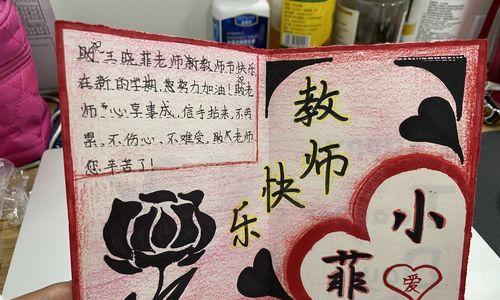 助王晓菲老师新教师节快乐
在新的学期,您努力加油!敬老
师"心享事成,信手拈来,不劳
累、不伤心、不难受,助老师
您辛苦了!
教师
快
乐
小
菲
爱